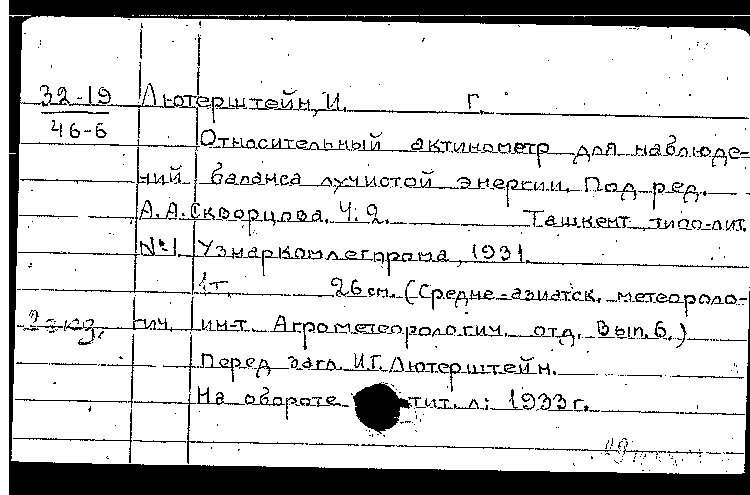 32-19 Лютерштейн, И. Г.
46-6
Относительный актинометр для наблюде-
ний баланса лучистой энергии. Под ред.
А. А. Скворцова. Ч: 2. Ташкент, типо-лит.
№1 Узнаркомлегпрома, 1931.
1т. 26 см. (Средне-азиатск. метеороло-
2 экз. гич. ин-т. Агрометеорологич. отд. Вып. 6.)
Перед загл. И.Г. Лютерштейн.
На обороте тит. л: 1933 г.